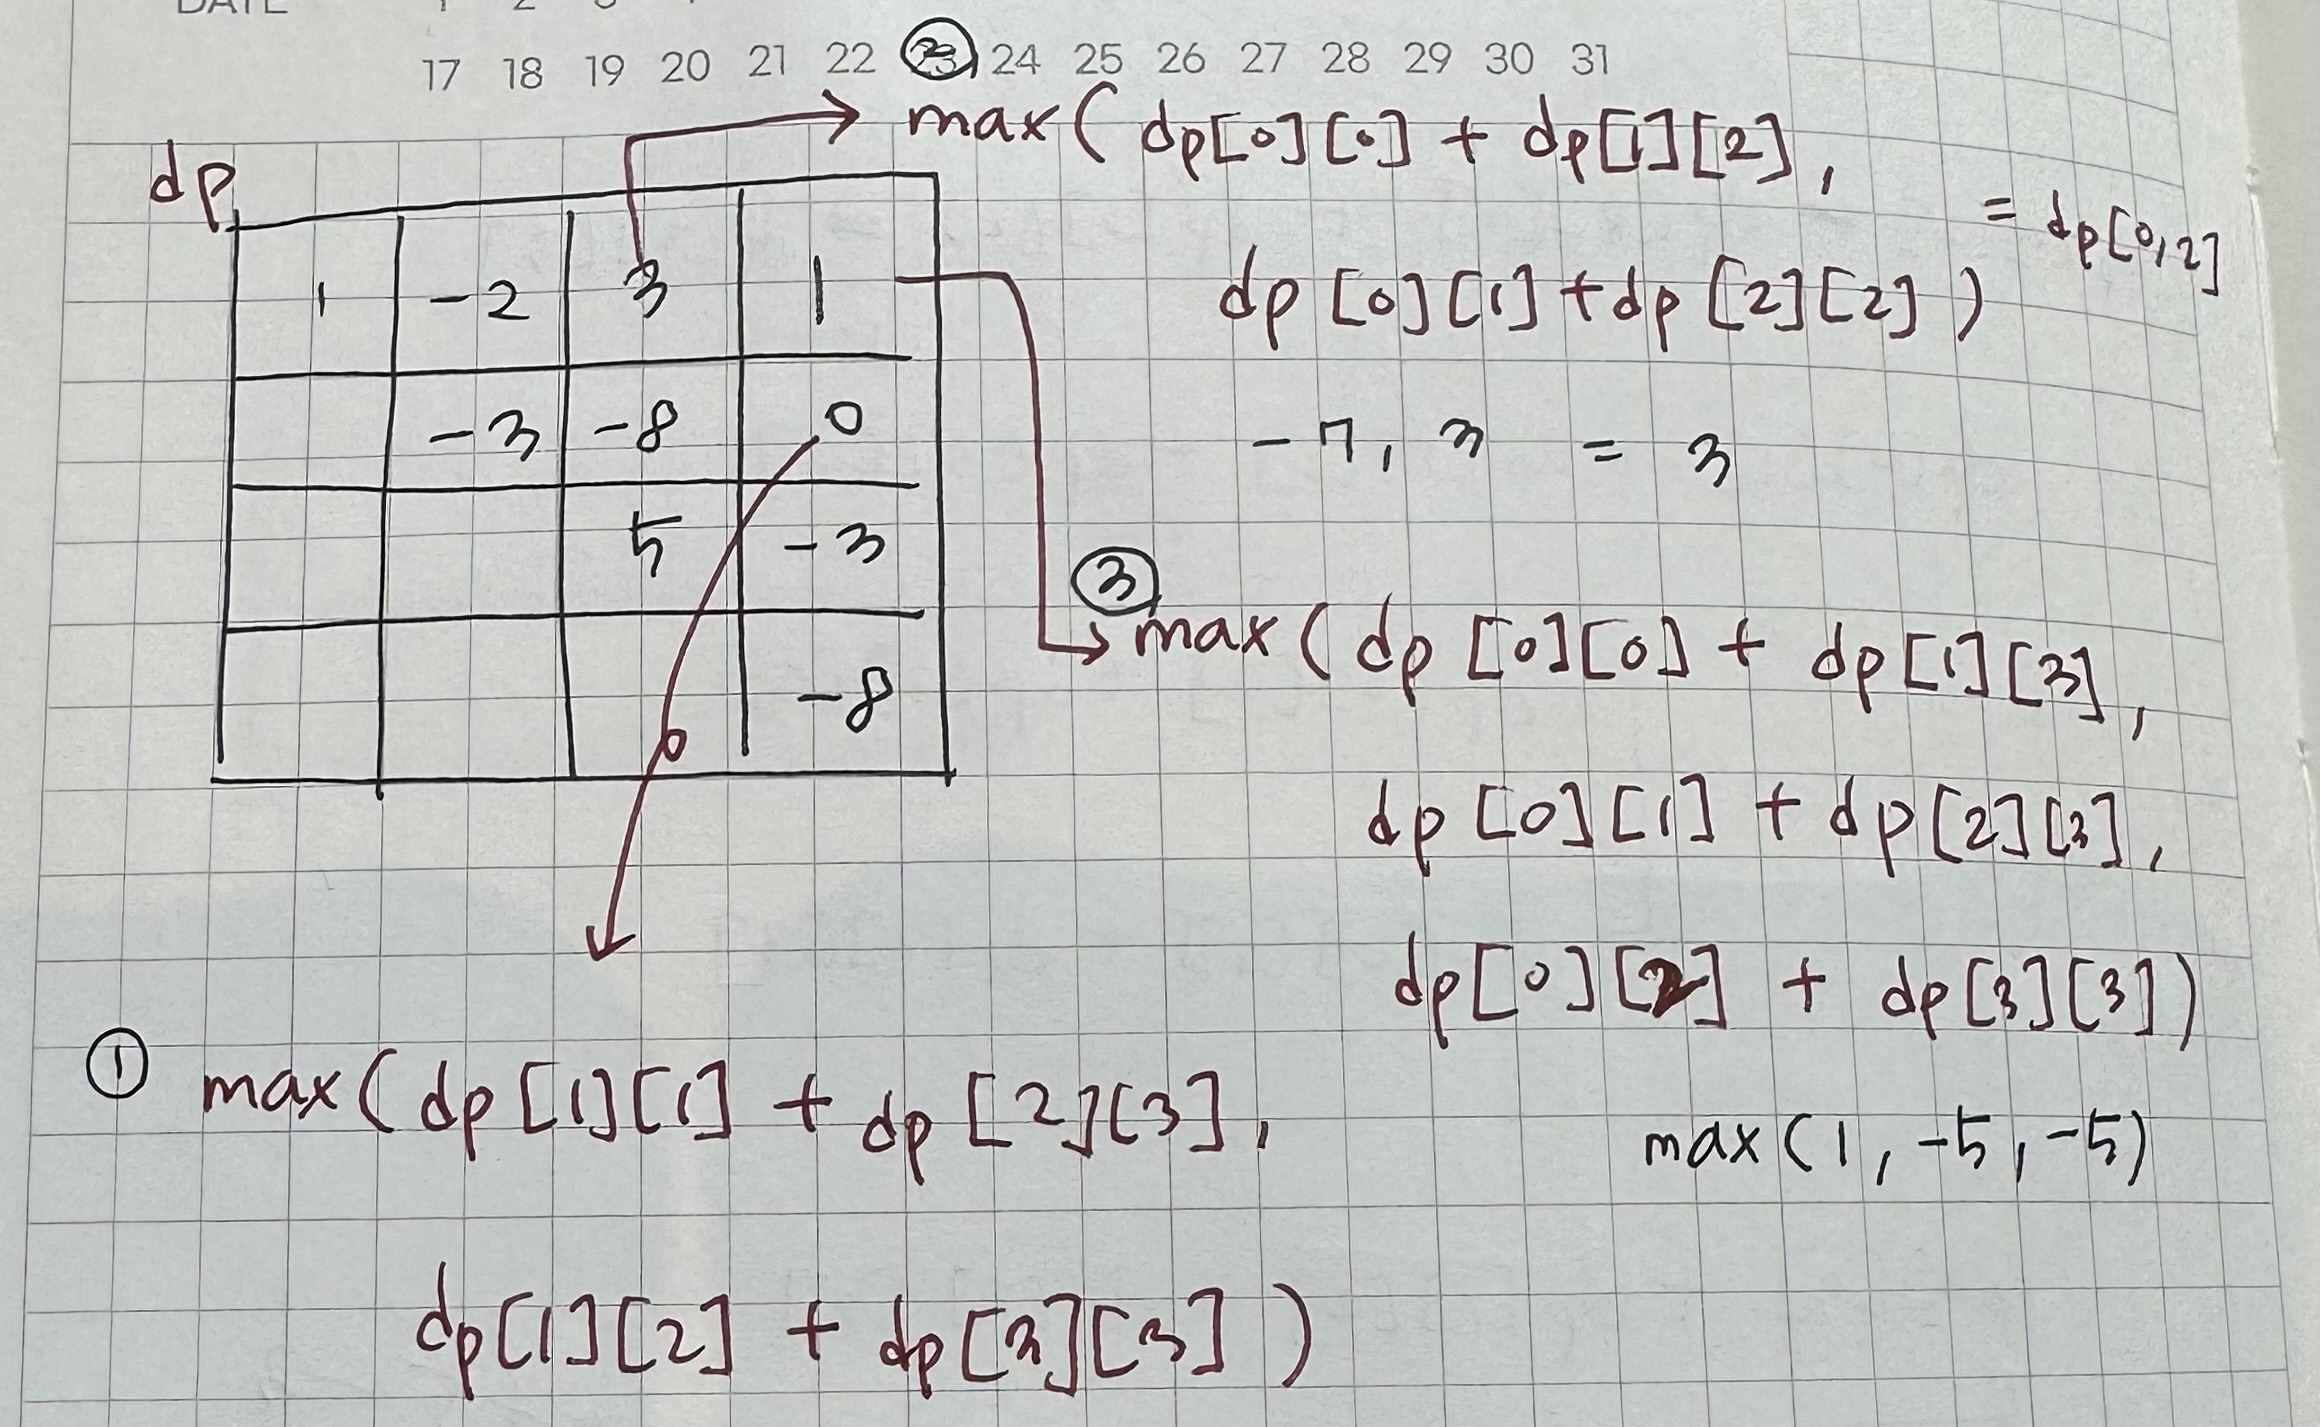 DATE
17 18 19 20 21 22 23 24 25 26 27 28 29 30 31
dp
1 -2 3 1
-3 -8 0
5 -3
-8
max( dp[0][0] + dp[1][2],
dp[0][1] + dp[2][2] )
= dp[0,2]
-7, 3 = 3
③
max( dp[0][0] + dp[1][3],
dp[0][1] + dp[2][3],
dp[0][2] + dp[3][3])
max(1, -5, -5)
① max( dp[1][1] + dp[2][3],
dp[1][2] + dp[3][3] )